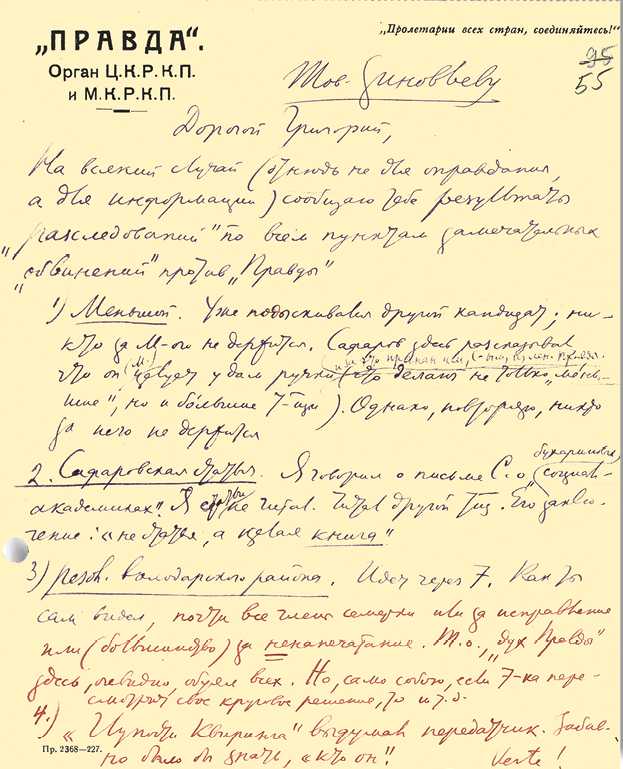 „Пролетарии всех стран, соединяйтесь!"
„ПРАВДА".
Орган Ц.К.Р.К.П.
и М.К.Р.К.П.
95
55
Тов. Зиновьеву
Дорогой Григорий,
На всякий случай (отнюдь не для оправдания,
а для информации) сообщаю тебе результаты
„расследований" по всем пунктам замечательных
„обвинений" против „Правды"
1) Меньшой. Уже подыскивался другой кандидат; ни-
кто за М-ого не держится. Сафаров здесь рассказывал
что он (М.) целует у дам ручки (это делают не только „мень-
шие", но и бо́льшие). Однако, повторяю, никто
за него не держится
2. Сафаровская статья. Я говорил о письме С. о „социал-
бухаринские,
академиках". Я статьи не читал. Читал другой тип. Его заклю-
чение: «не статья, а целая книга"
3) резол. володарского района. Идет через 7. Как ты
сам видел, почти все члены семерки или за исправление
или (большинство) за ненапечатание. Т.о., „дух Правды"
здесь, очевидно, обуял всех. Но, само собою, если 7-ка пере-
смотрит свое круговое решение, то и т.д.
4.) „Цупоти Квиринга" выдумал передатчик. Забав-
но было бы знать, «кто он".
Verte!
Пр. 2368—227.